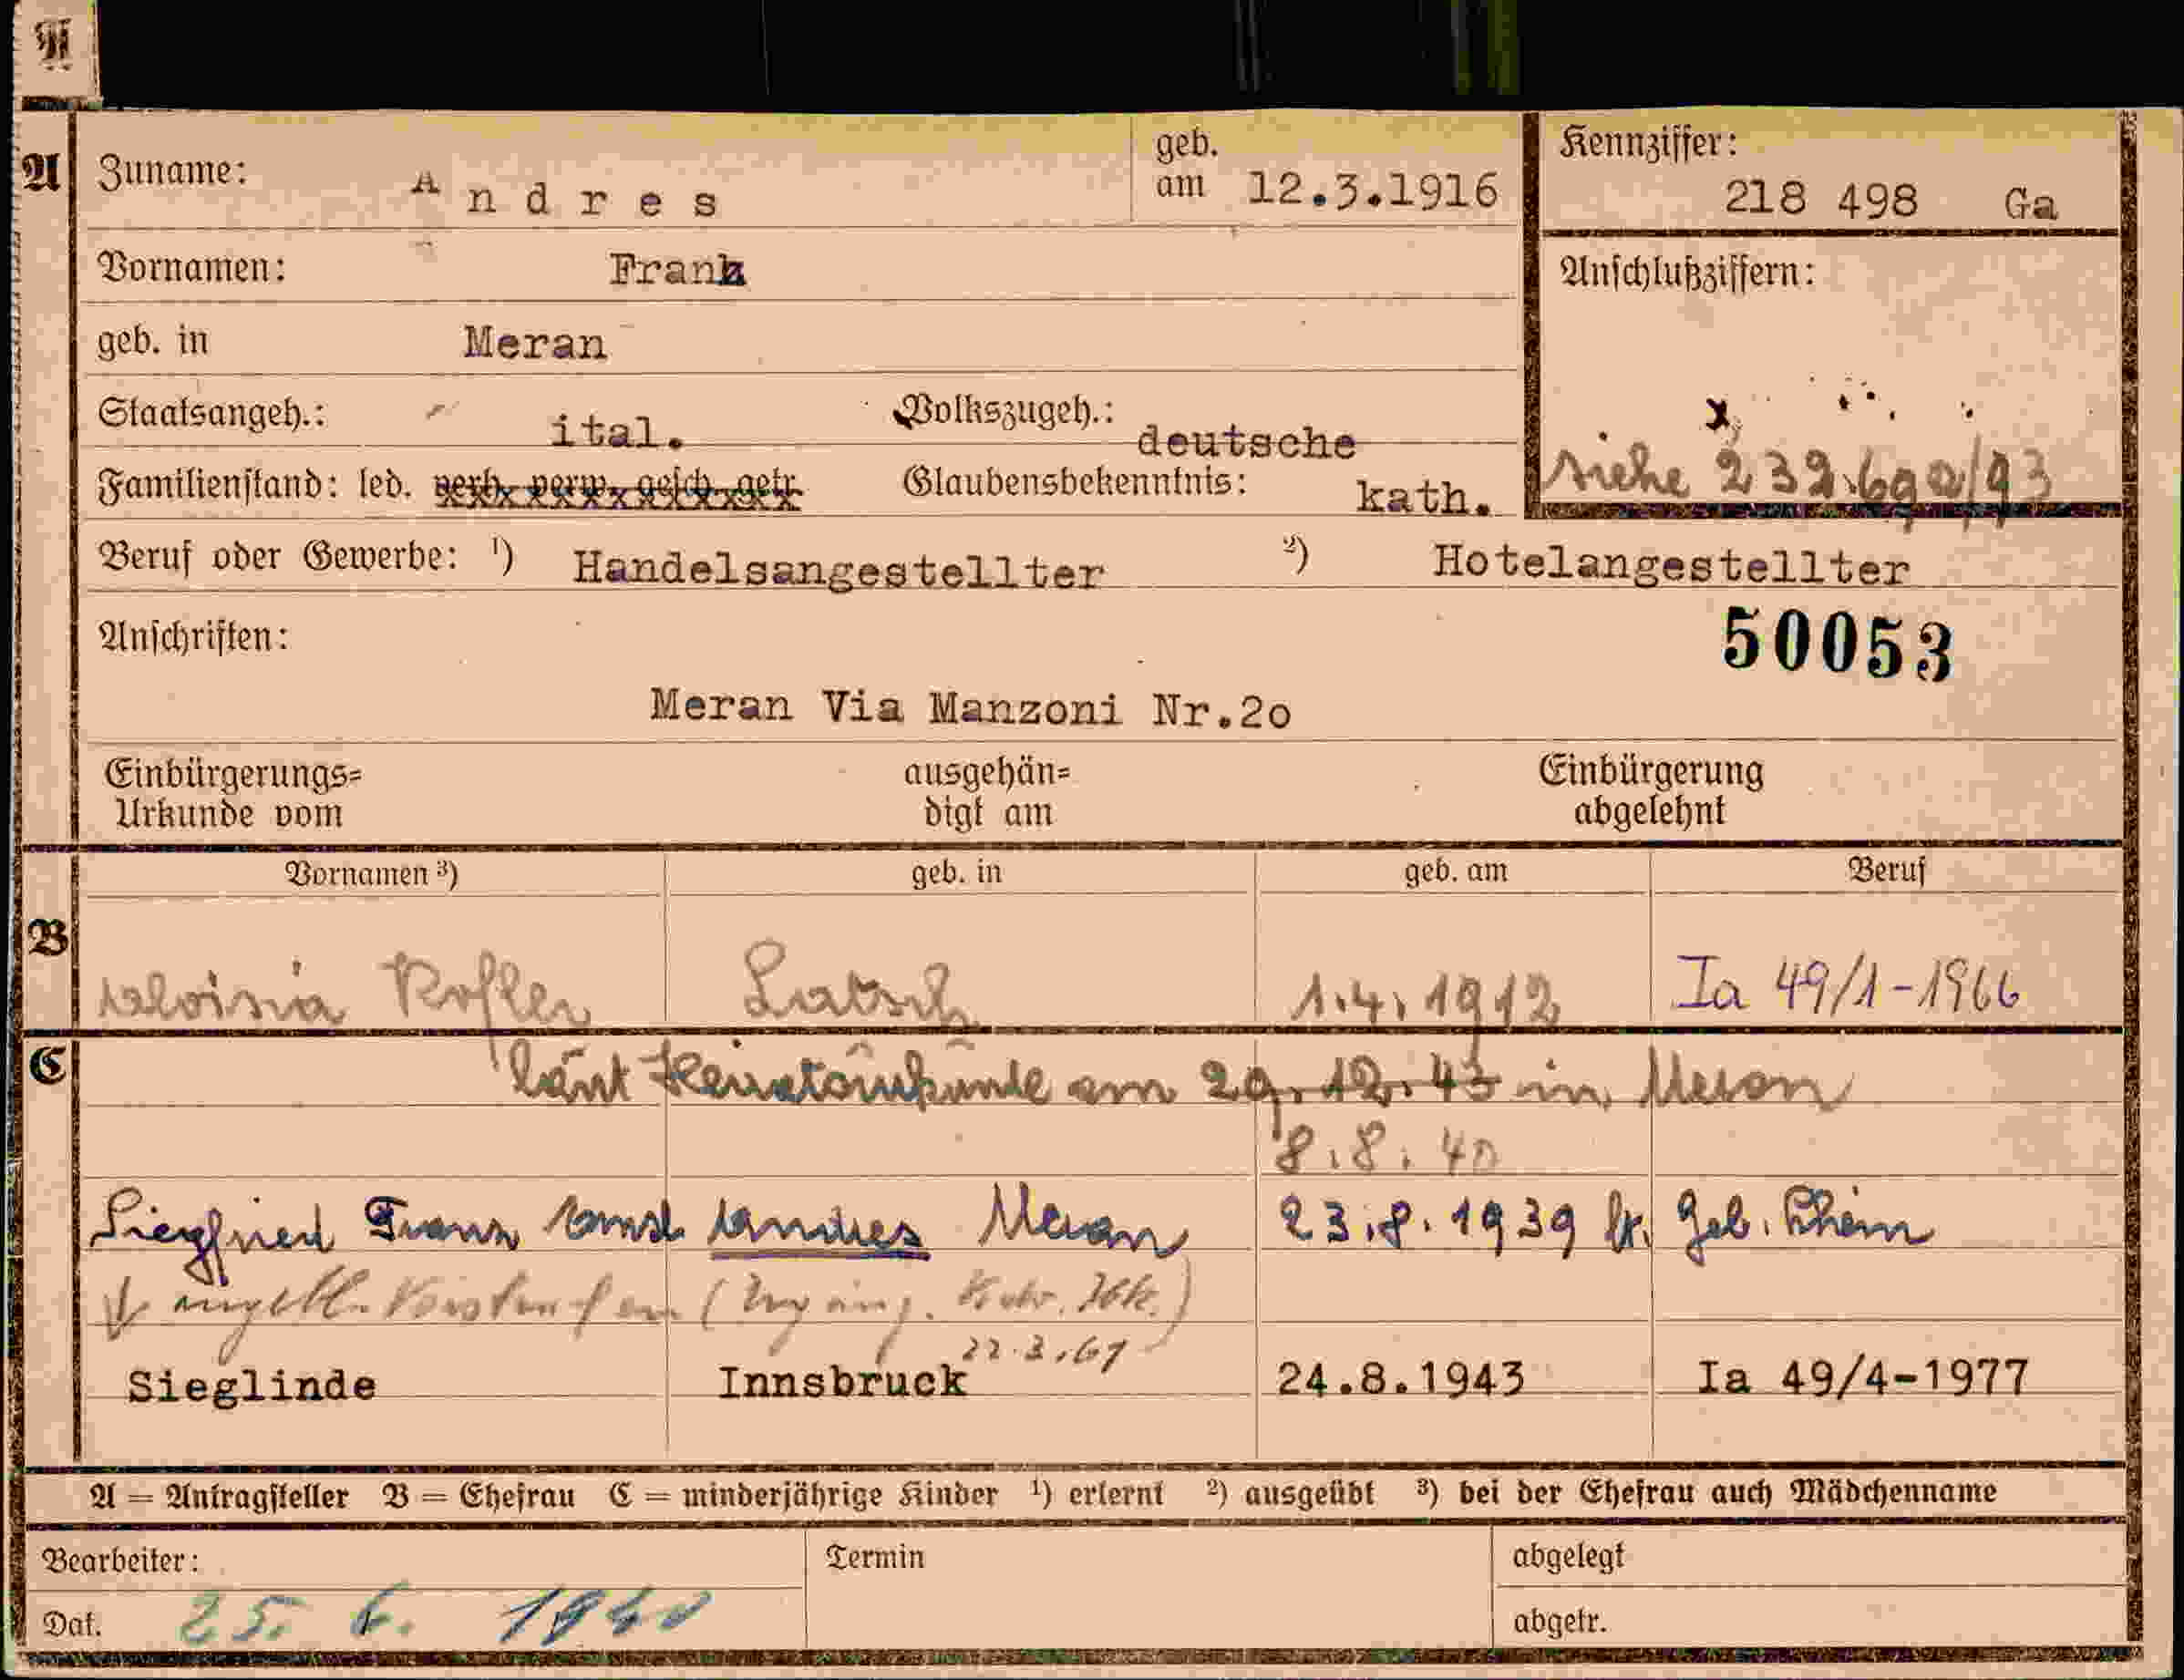 A
A Zuname: Andres geb. am 12.3.1916 Kennziffer: 218 498 Ga
Vornamen: Franz Anschlußziffern:
geb. in Meran
Staatsangeh.: ital. Volkszugeh.: deutsche x
Familienstand: led. verh. verw. gesch. getr. Glaubensbekenntnis: kath. siehe 232.692/93
Beruf oder Gewerbe: ¹) Handelsangestellter ²) Hotelangestellter
Anschriften: 50053
Meran Via Manzoni Nr.2o
Einbürgerungs= ausgehän= Einbürgerung
Urkunde vom digt am abgelehnt
Vornamen ³) geb. in geb. am Beruf
B
Aloisia Kofler Latsch 1.4.1912 Ia 49/1-1966
C laut Heiratsurkunde am 29.12.43 in Meran
8.8.40
Siegfried Franz Andres Meran 23.8.1939 Geb.
22.3.61
Sieglinde Innsbruck 24.8.1943 Ia 49/4-1977
A = Antragsteller B = Ehefrau C = minderjährige Kinder ¹) erlernt ²) ausgeübt ³) bei der Ehefrau auch Mädchenname
Bearbeiter: Termin abgelegt
Dat. 25. 6. 1940 abgetr.